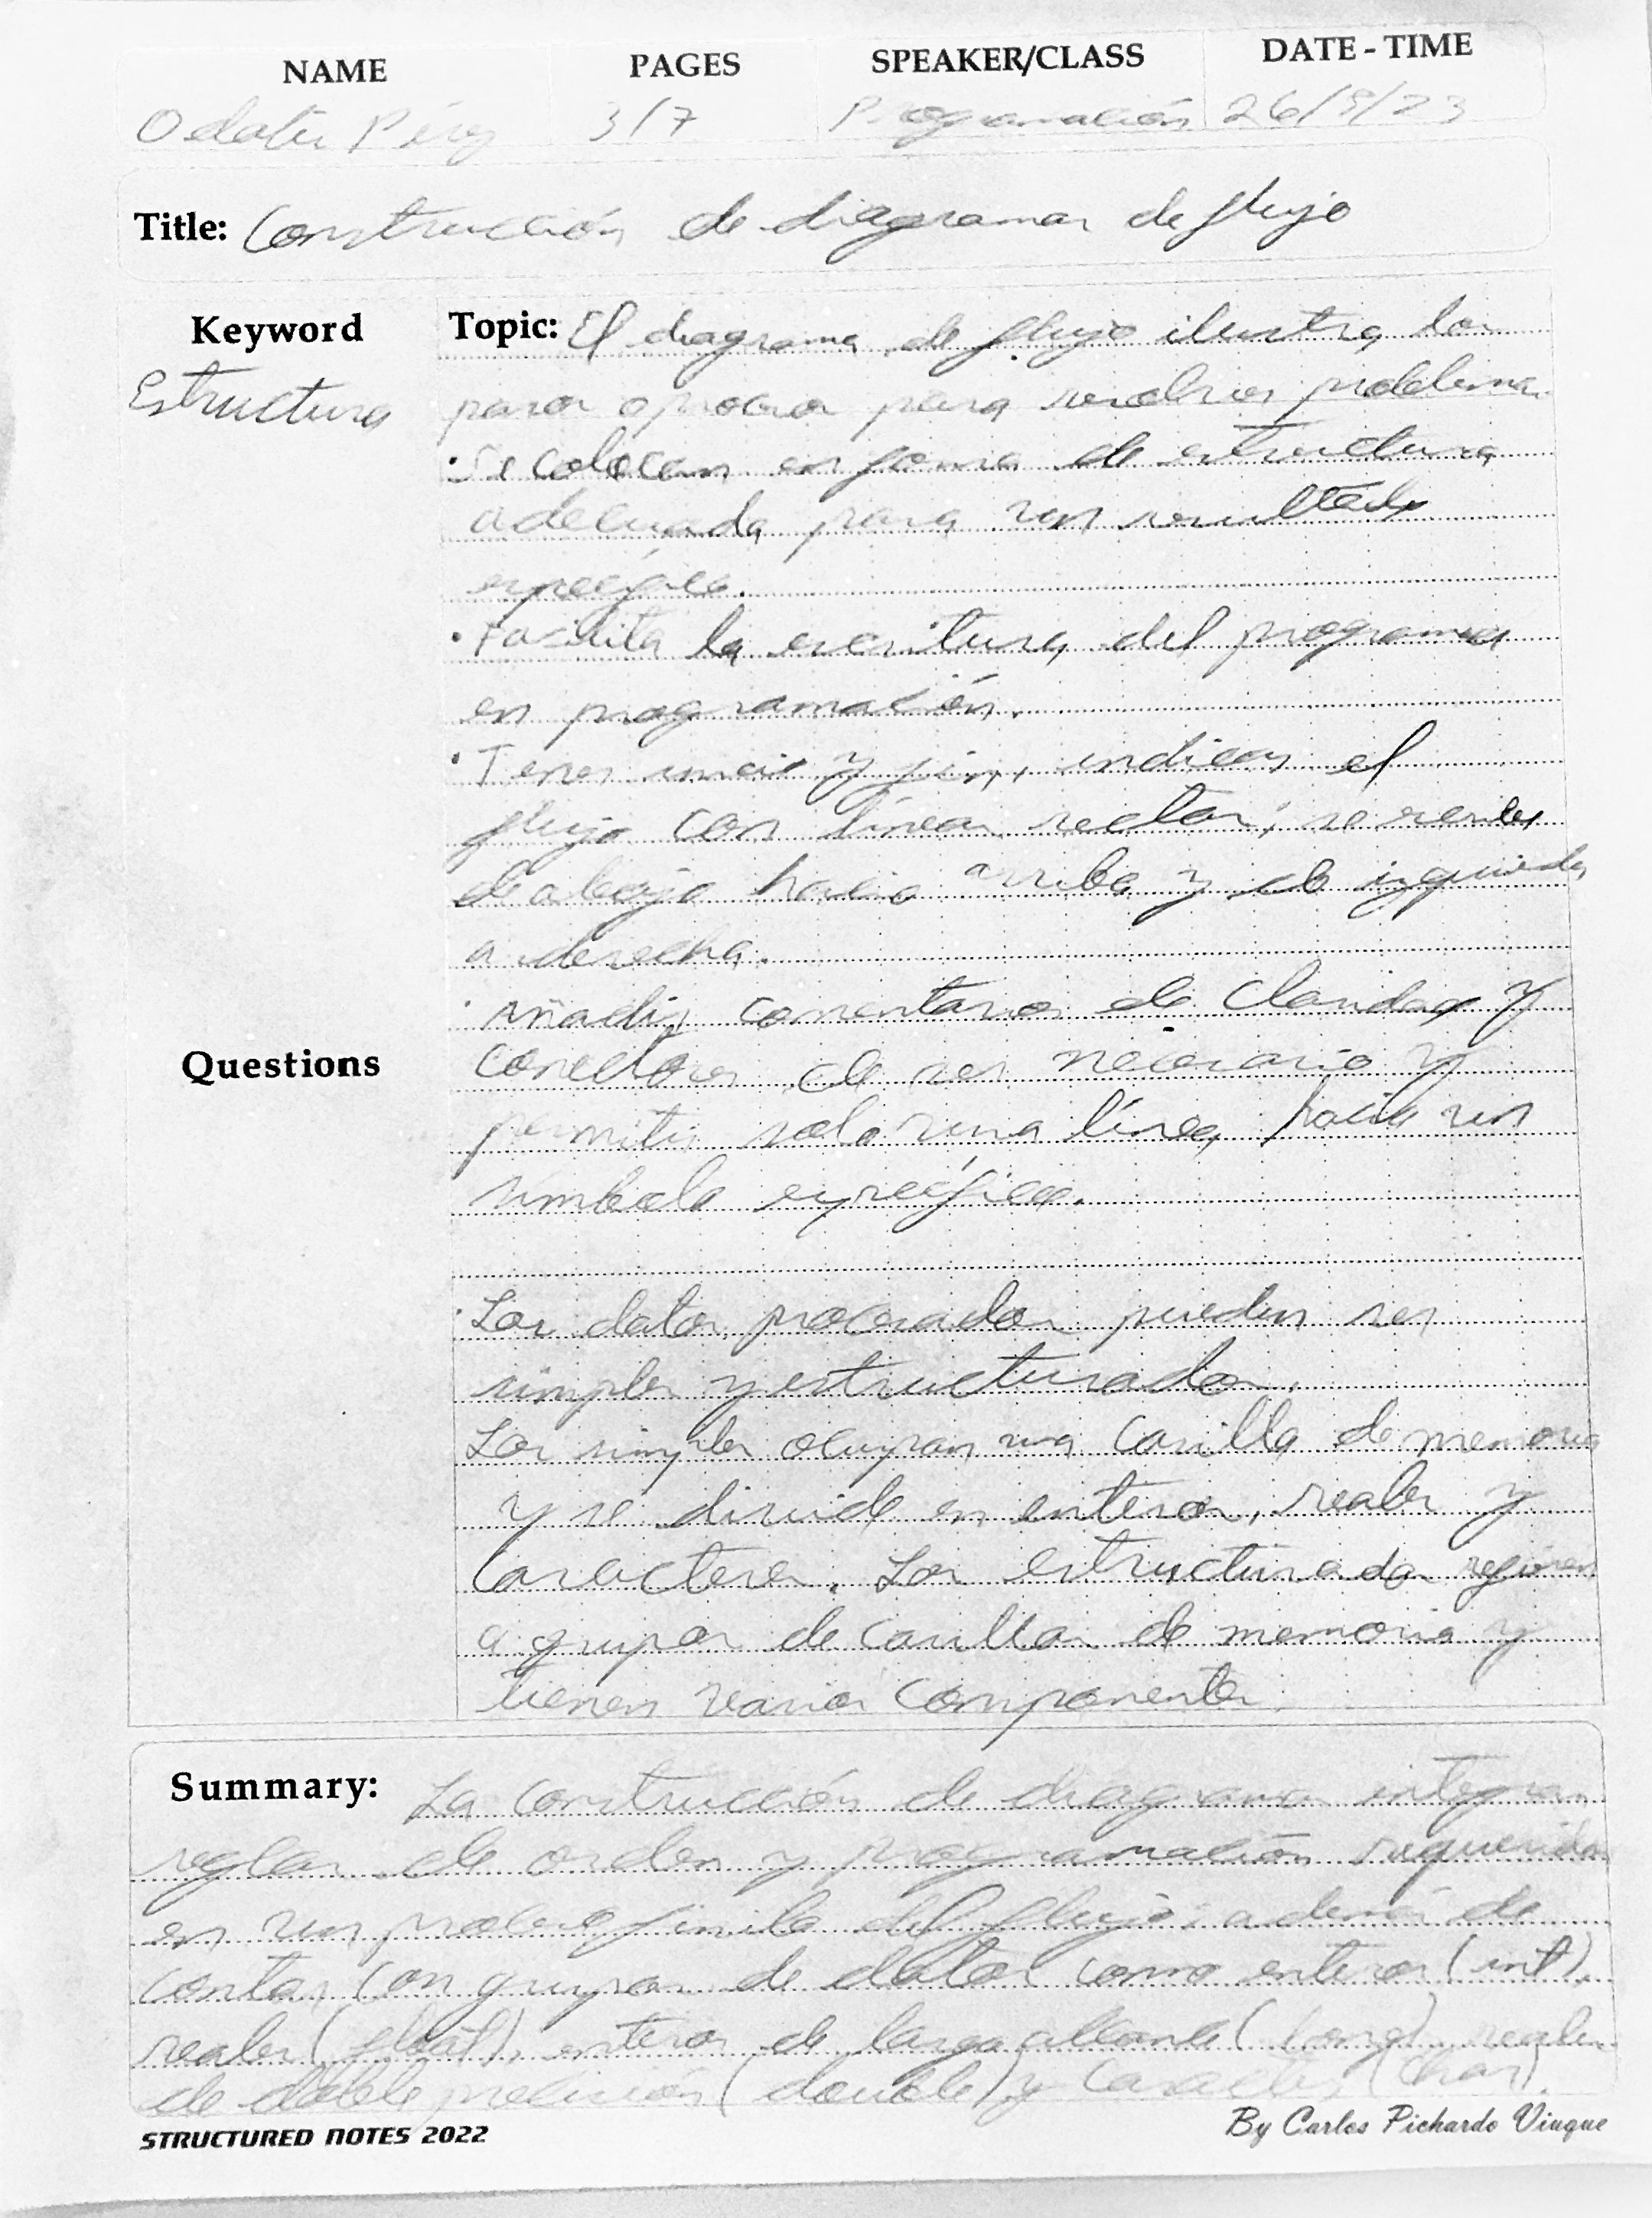 NAME PAGES SPEAKER/CLASS DATE - TIME
Pérez 3/7 Programación 26/9/23
Title: Construcción de diagramas de flujo
Keyword
Estructura
Topic: El diagrama de flujo ilustra los
pasos o procesos para resolver problemas.
· Se colocan en forma de estructura
adecuada para un resultado
específico.
· Facilita la escritura del programa
en programación.
· Tener inicio y fin, indicar el
flujo con líneas rectas, se
de abajo hacia arriba y de izquierda
a derecha.
· Añadir comentarios de claridad y
Questions
conectores de ser necesario y
permitir solo una línea hacia un
símbolo específico.
· Los datos procesados pueden ser
simples y estructurados.
Los simples ocupan una casilla de memoria
y se divide en enteros, reales y
caracteres. Los estructurados
a grupos de casillas de memoria y
tienen varios componentes.
Summary: La construcción de diagramas integran
reglas de orden y programación requeridas
en un proceso finito del flujo, además de
contar con grupos de datos como enteros (int),
reales (float), enteros de largo alcance (long), reales
de doble precisión (double) y caracter (char).
STRUCTURED NOTES 2022
By Carlos Pichardo Viuque